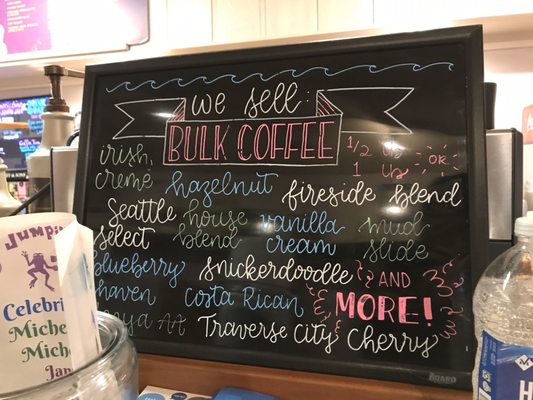 we sell:
BULK COFFEE
1/2 lbs
OR
1 lbs
irish creme
hazelnut
fireside blend
Seattle select
house blend
vanilla cream
mud slide
blueberry haven
snickerdoodle
Costa Rican
AND
MORE!
AA
Traverse City Cherry
BOARD
Celebri
Miche
Miche